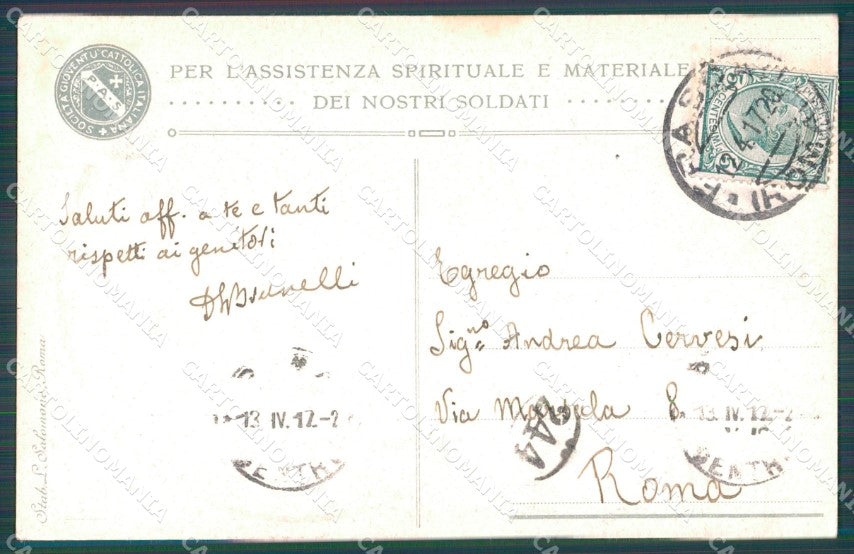 SOCIETÀ GIOVENTÙ CATTOLICA ITALIANA
P.A.S
PER L'ASSISTENZA SPIRITUALE E MATERIALE
DEI NOSTRI SOLDATI
FRASCATI (ROMA)
12.4.17.20
Saluti aff. a te e tanti
rispetti ai genitori
Egregio
Signo Andrea Cervesi
Via Marsala 8.
Roma
13 IV.17.-2
13 IV.17.-2
244
Stab. L. Salomone, Roma
CARTOLINOMANIA